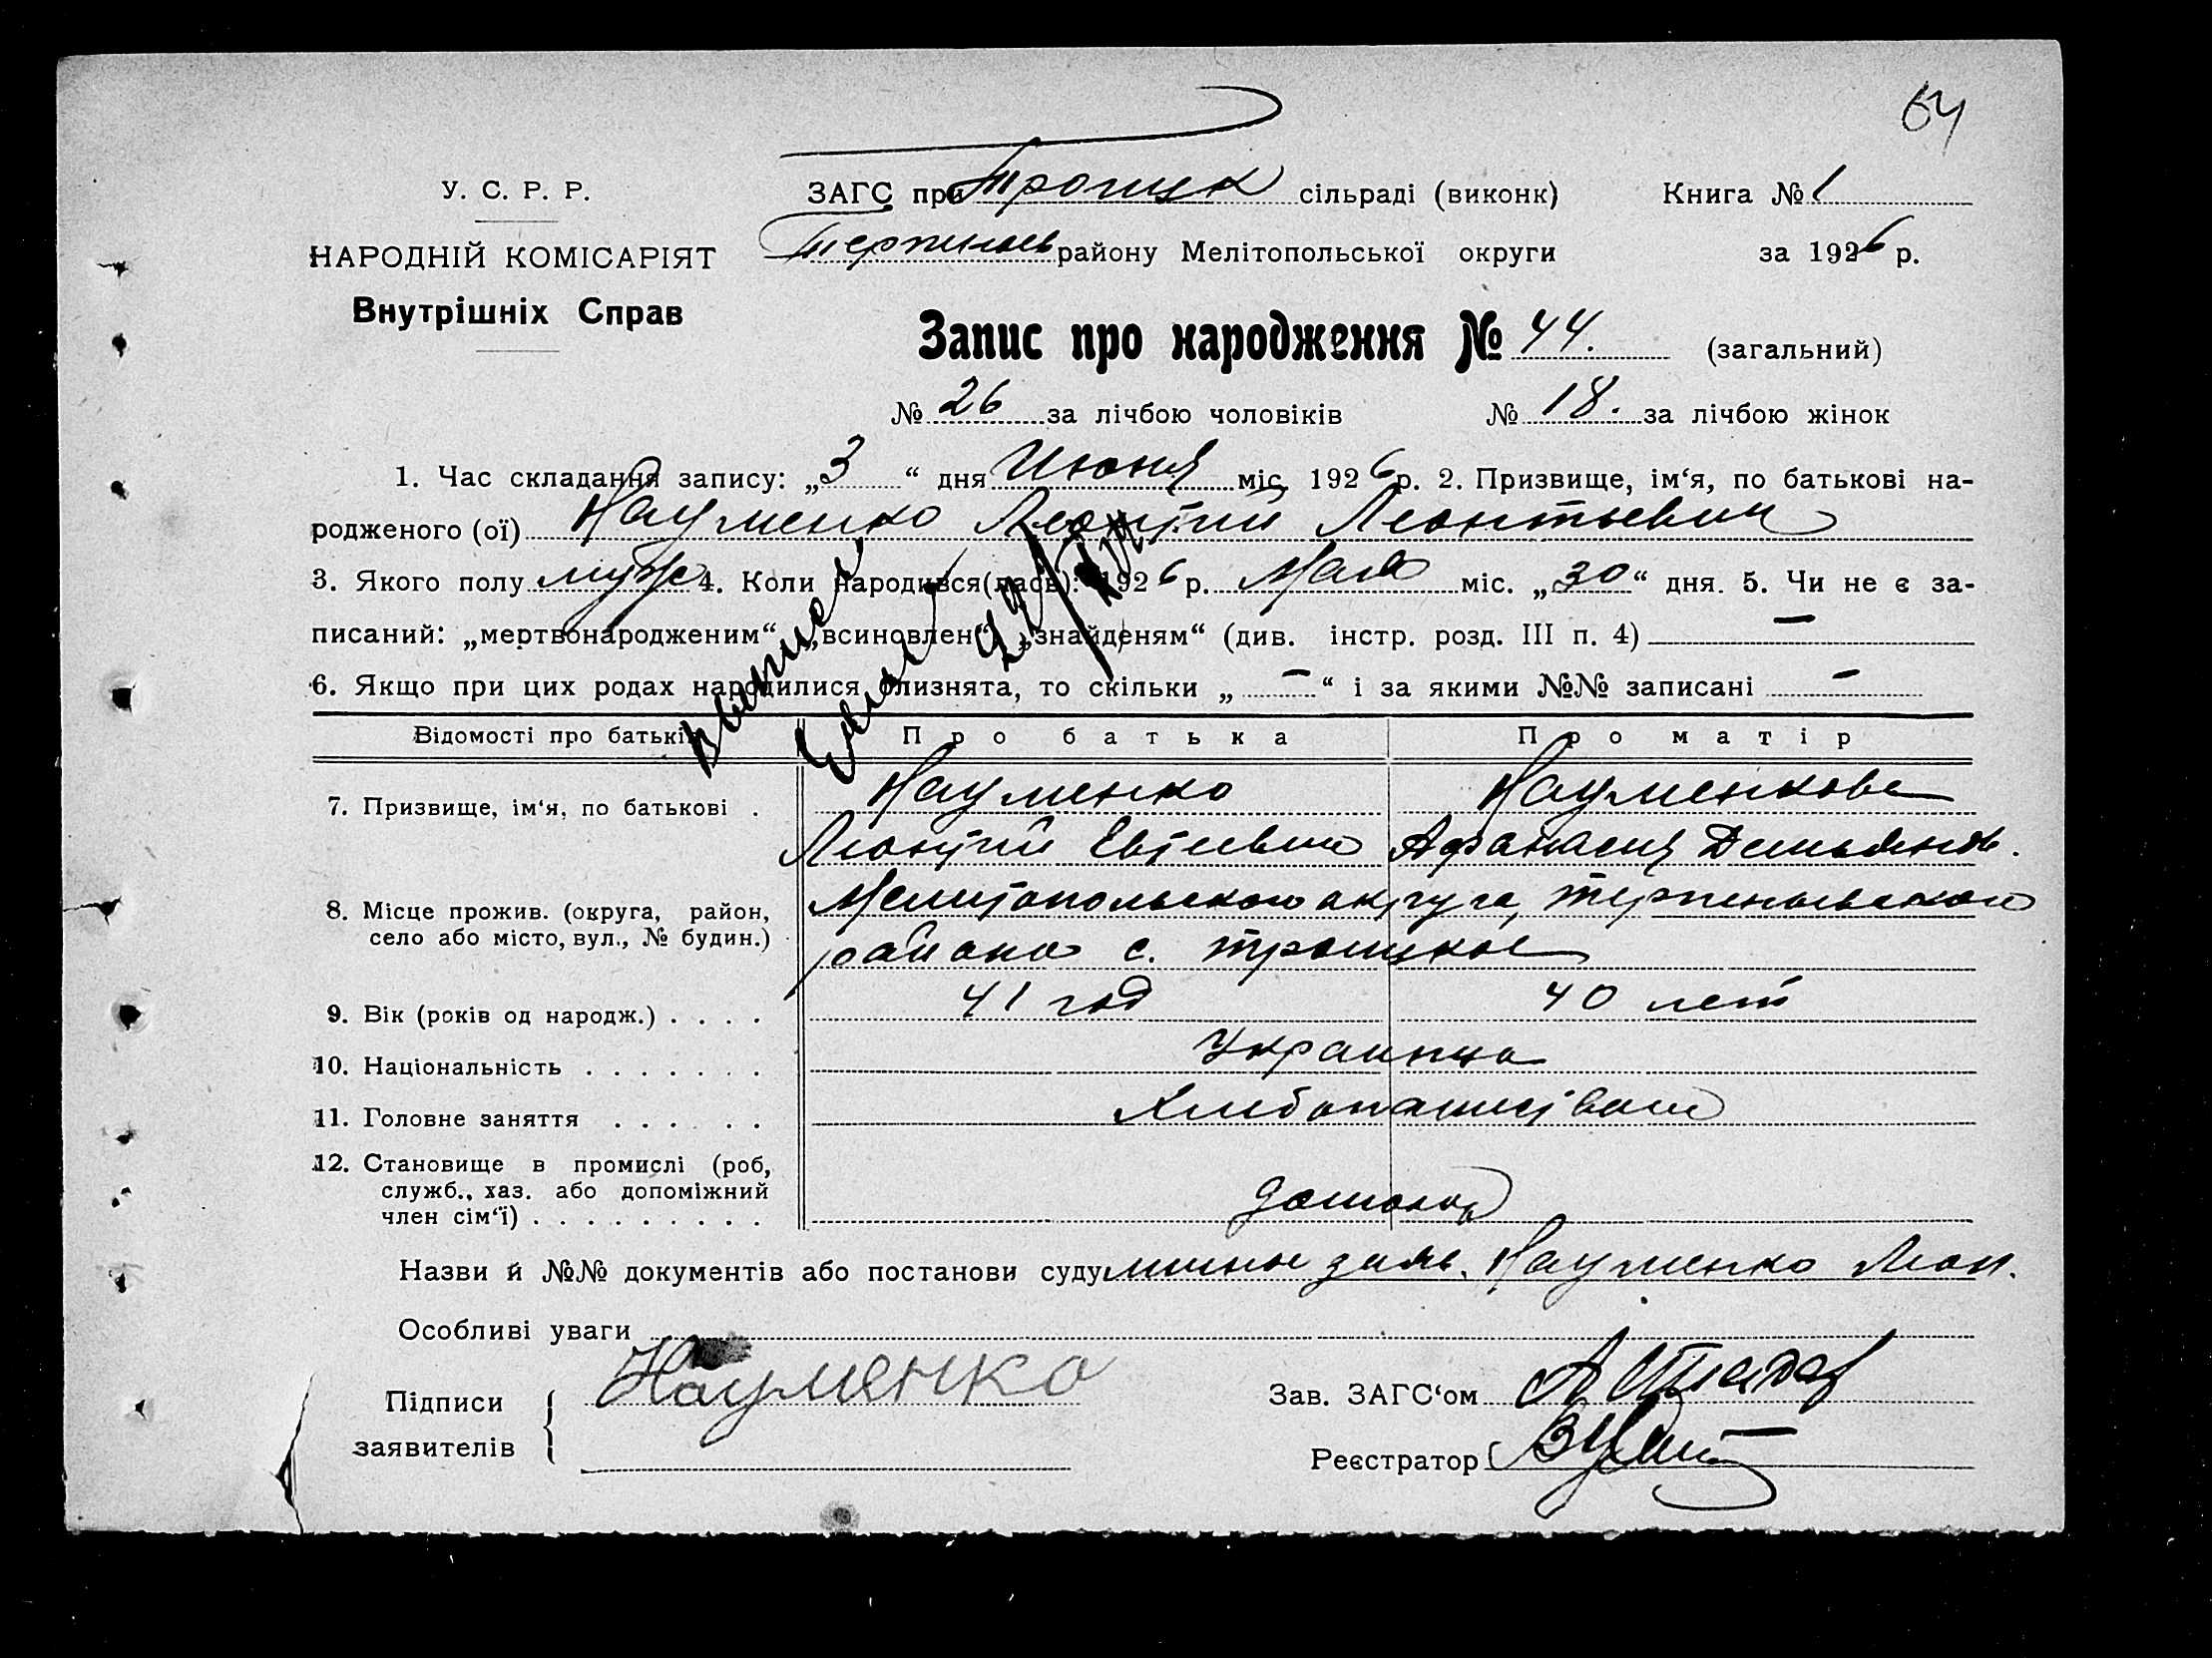 64
У. С. Р. Р.
НАРОДНІЙ КОМІСАРІЯТ
Внутрішніх Справ
ЗАГС при Троицк сільраді (виконк)
Терпеньев району Мелітопольської округи
Книга № 1
за 1926 р.
Запис про народження № 44. (загальний)
№ 26 за лічбою чоловіків № 18. за лічбою жінок
1. Час складання запису: „3“ дня Июня міс. 1926 р. 2. Призвище, ім‘я, по батькові на-
родженого (ої) Науменко Леонтий Леонтьевич
3. Якого полу муж 4. Коли народився(лась): 1926 р. Мая міс. „30“ дня. 5. Чи не є за-
писаний: „мертвонародженим“ „всиновлен“, „знайденям“ (див. інстр. розд. III п. 4) —
6. Якщо при цих родах народилися близнята, то скільки „ – “ і за якими №№ записані –
Відомості про батьків Про батька Про матір
7. Призвище, ім‘я, по батькові . Науменко Науменкова
Леонтий Евтиевич Афанасия Демьянов.
8. Місце прожив. (округа, район,
село або місто, вул., № будин.)
Мелитопольского округа, Терпеньевского
района с. Троицкое
9. Вік (років од народж.) . . . . 41 год 40 лет
10. Національність . . . . . . . Украинцы
11. Головне заняття . . . . . . Хлебопашество
12. Становище в промислі (роб,
служб., хаз. або допоміжний
член сім‘ї) . . . . . . . . .
Назви й №№ документів або постанови суду Науменко Леон.
Особливі уваги
Підписи
заявителів
Науменко
Зав. ЗАГС‘ом
Реєстратор